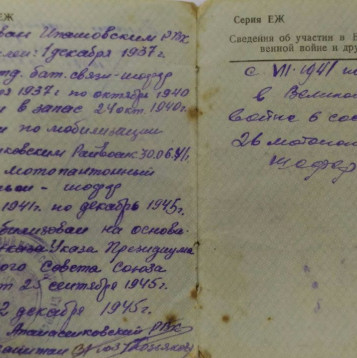 ЕЖ
ван Ипатовским РВК
1 декабря 1937 г.
отд. бат. связи - шофер
1937 г. по октябрь 1940
в запас 24 окт. 1940 г.
по мобилизации
Райвоен. 30.06.41 г.
мотопонтонный
- шофер
1941 г. по декабрь 1945 г.
билизован на основа-
Указа Президиума
ого Совета Союза
от 25 сентября 1945 г.
2 декабря 1945 г.
РВК
капитан
Серия ЕЖ
Сведения об участии в В
венной войне и дру
с VII-1941 по
в Велико
война в сос
26 мотопон
шофер